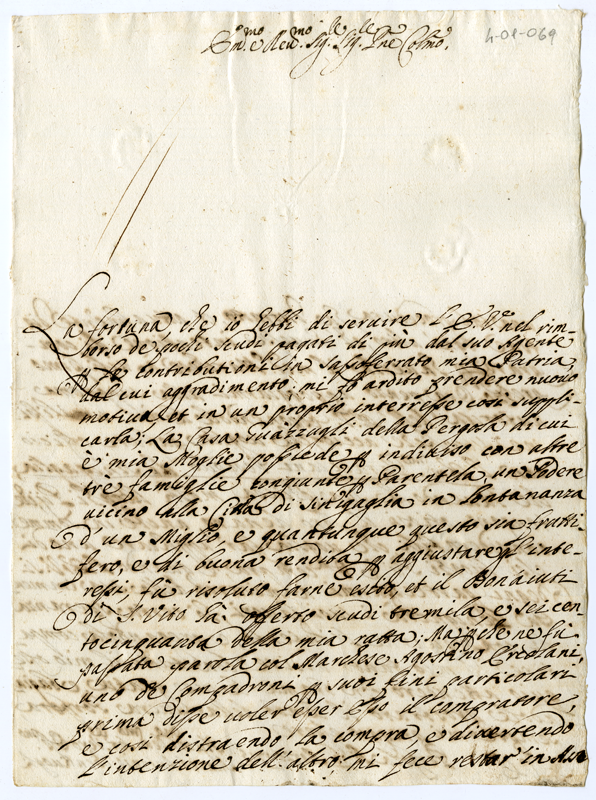 4-01-069
Em.mo e Reu.mo Sig.re Sig.re Pne Colmo.
La fortuna, che io hebbi di seruire l'E.V. nel rim-
borso de pochi scudi pagati di più dal suo Agente
p le contributioni in Sassoferrato mia Patria,
dal cui aggradimento, mi fò ardito prendere nuovo
motiuo, et in un proprio interresse così suppli-
carla; La Casa Guazzugli della Pergola di cui
è mia Moglie possiede p indiuiso con altre
tre famiglie congiunte p Parentela, un Podere
uicino alla Città di Sinigaglia in lontananza
d'un Miglio, e quantunque questo sia frutti-
fero, e di buona rendita p aggiustare gl'inte-
ressi, fù risoluto farne esito, et il Bonaiuti
di S. Vito hà offerto scudi tremila, e sei cen-
tocinquanta della mia ratta; Mà p che ne fù
passata parola col Marchese Agostino
uno de Compadroni p suoi fini particolari
prima disse uoler esser esso il compratore,
e così distraendo la compra, e diuertendo
l'intenzione dell'altro, mi fece restar' in